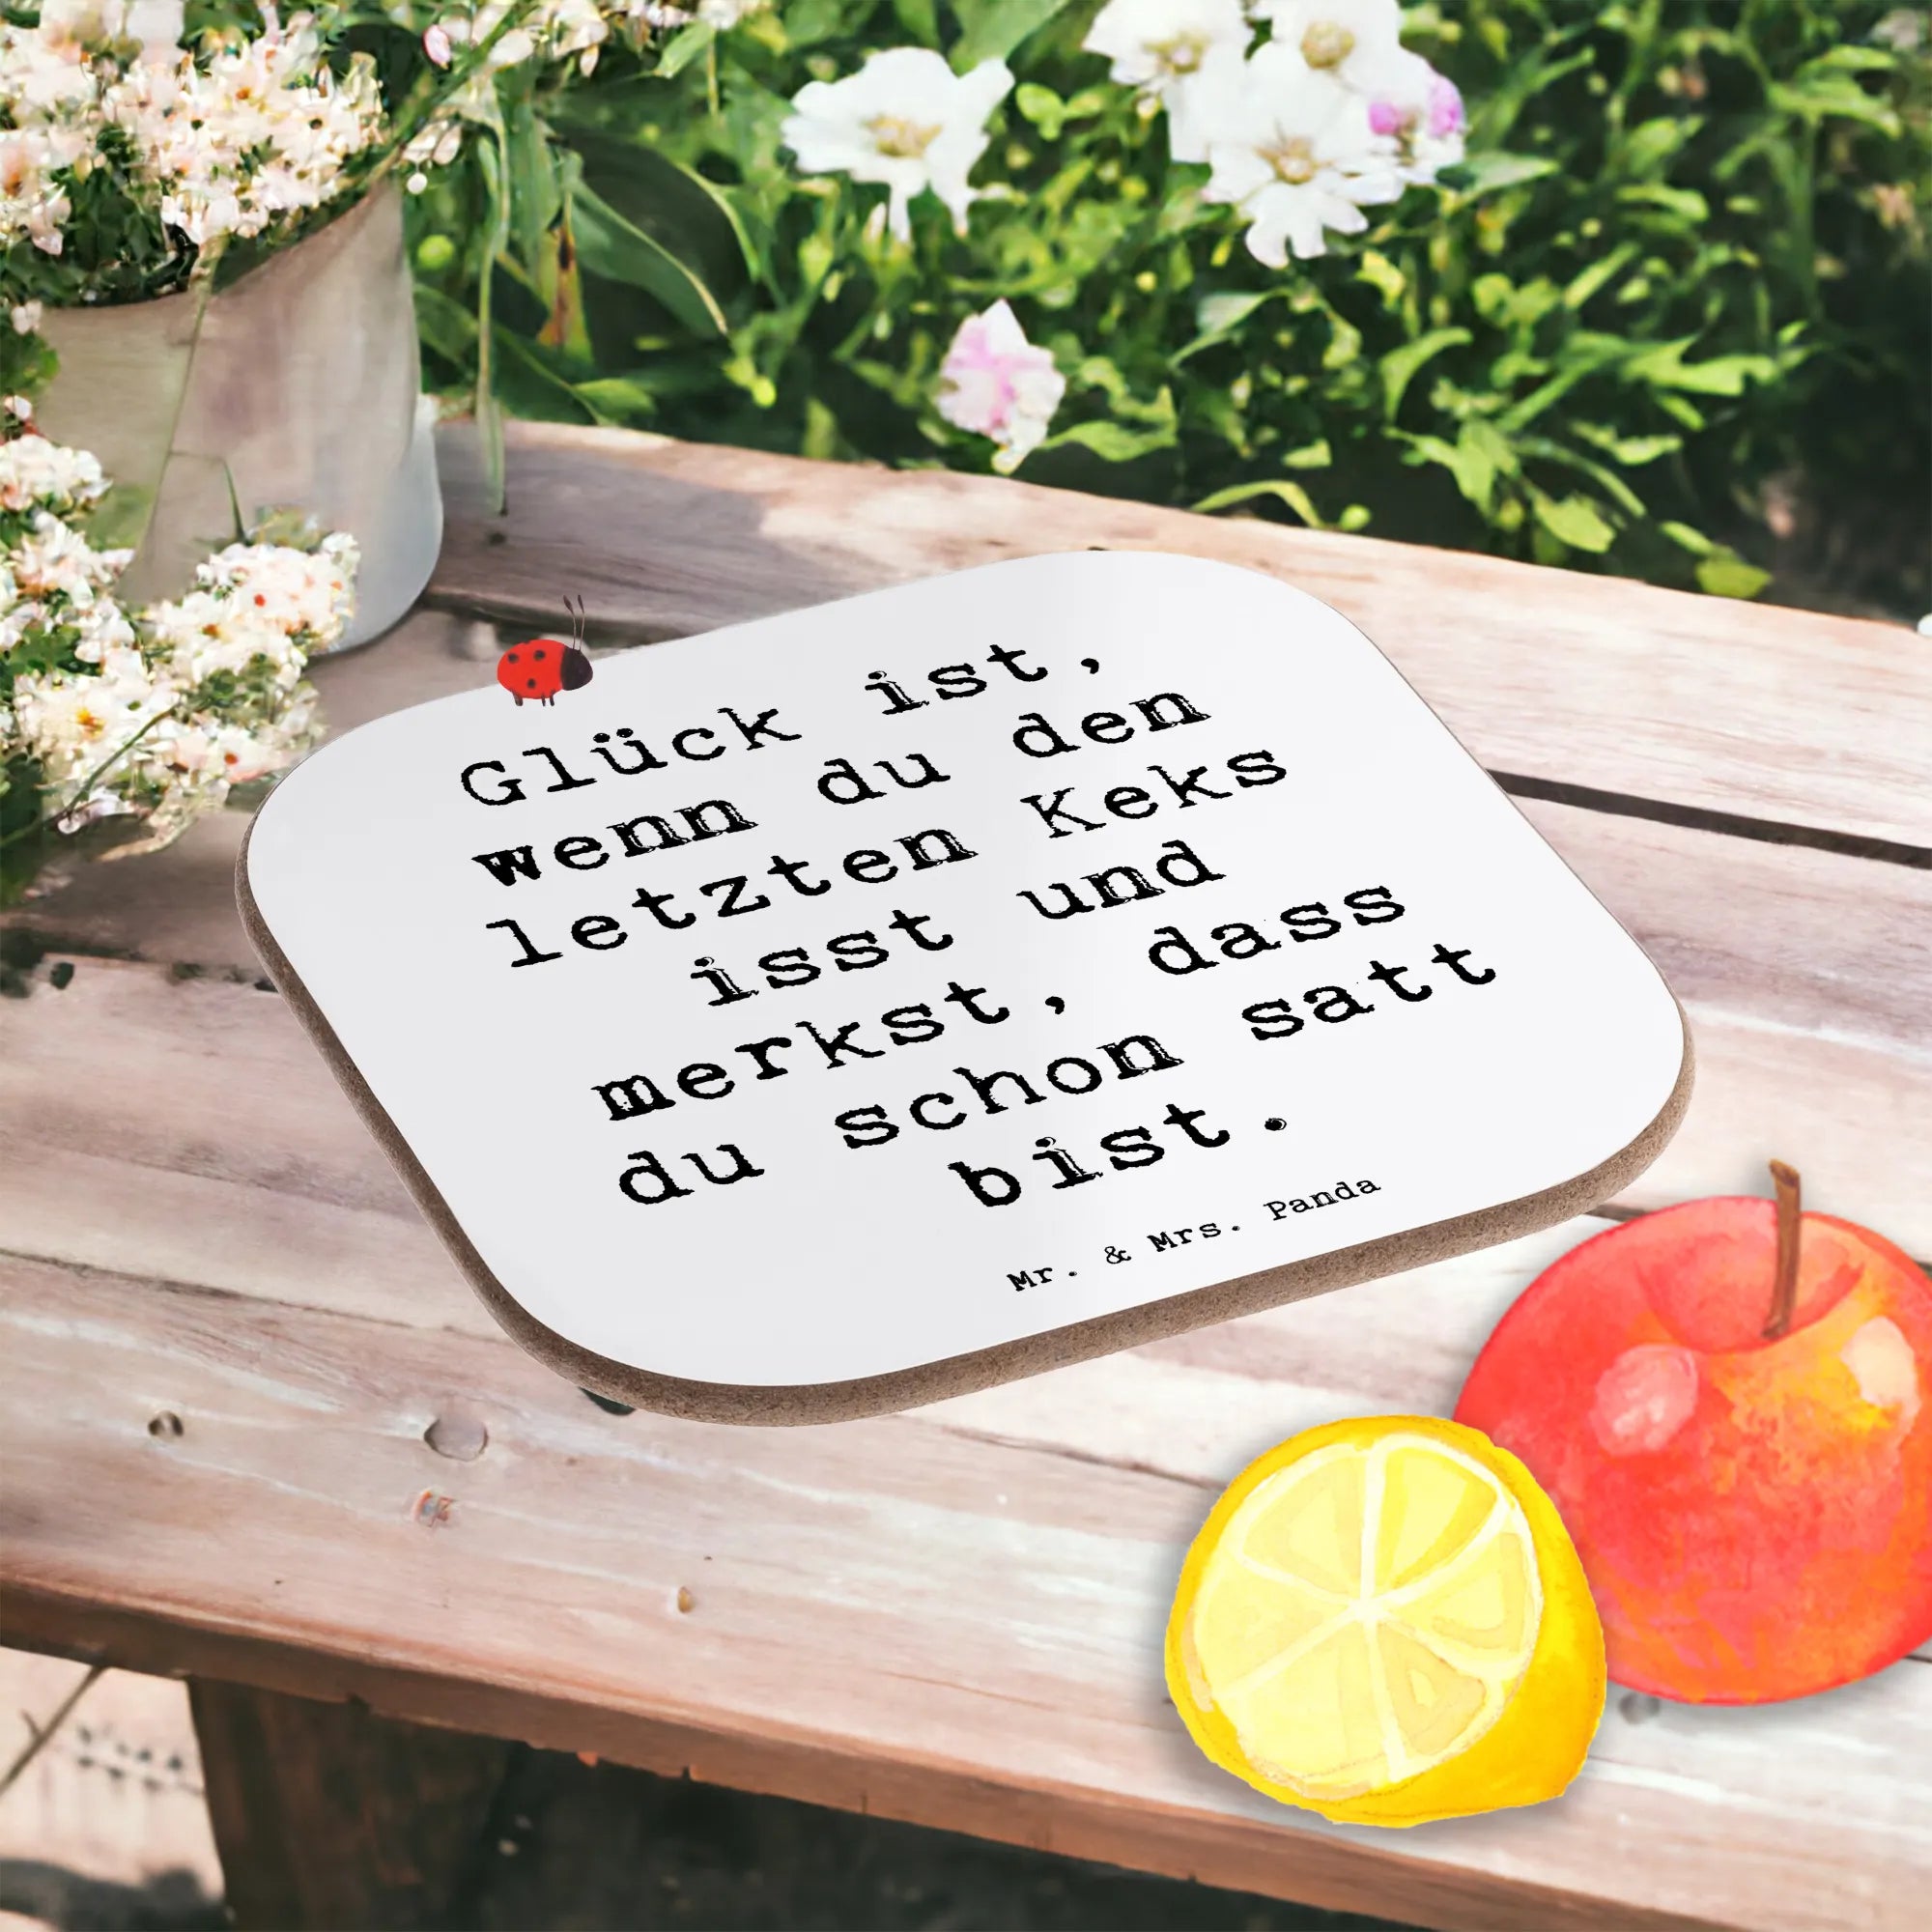 Glück ist,
wenn du den
letzten Keks
isst und
merkst, dass
du schon satt
bist.
Mr. & Mrs. Panda